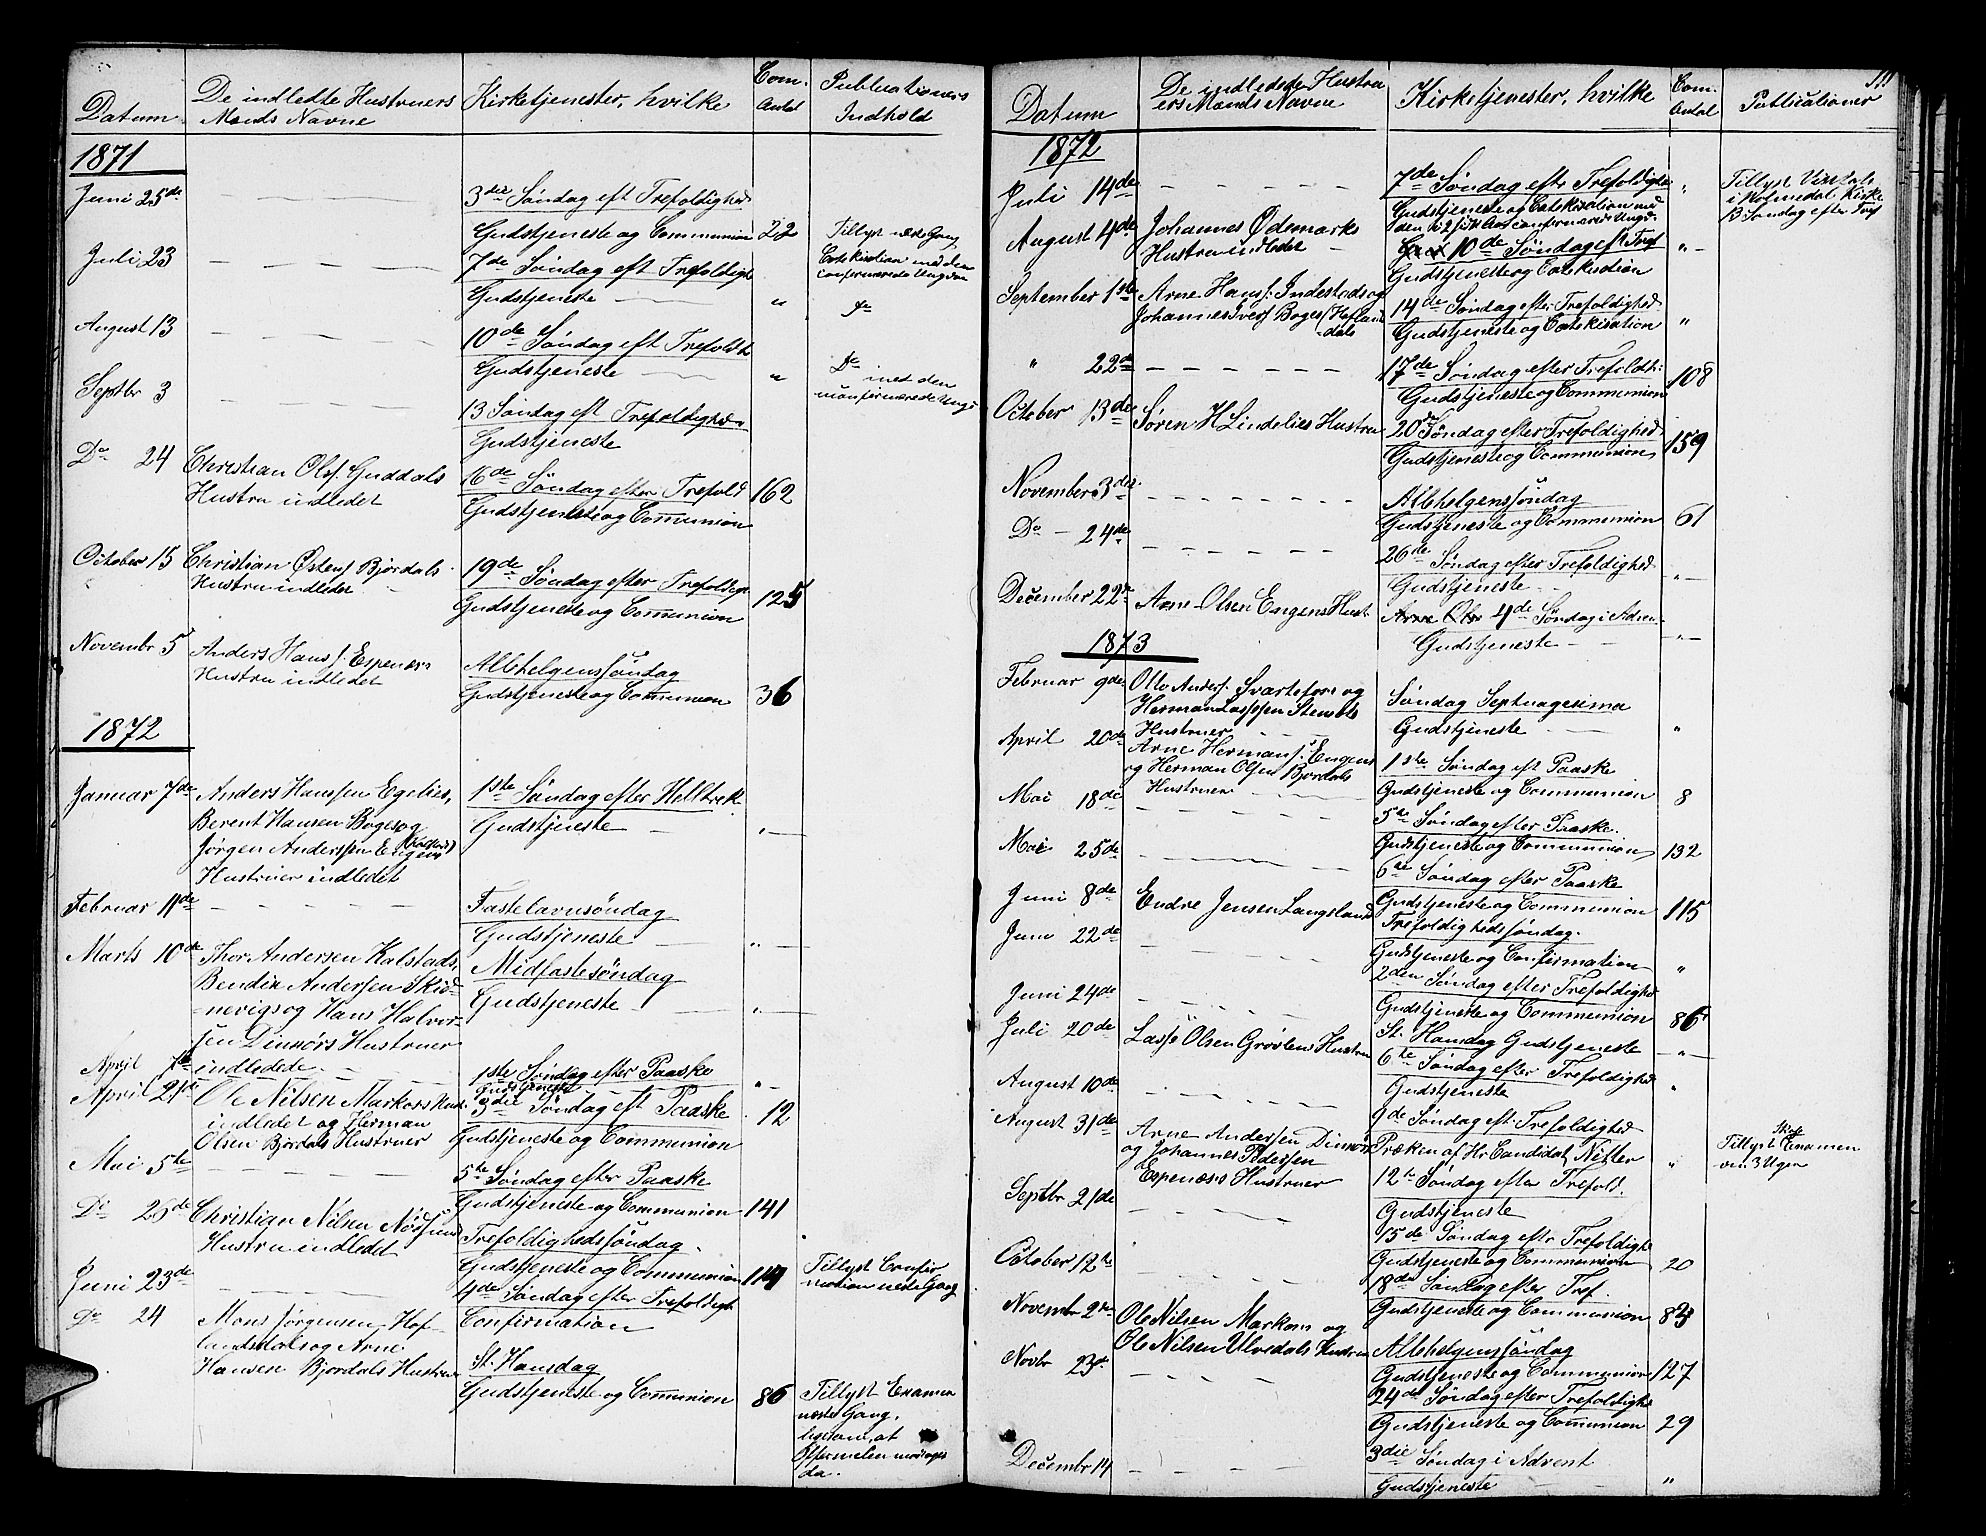 Datum
De indledte Hustruers
Mænds Navne
Kirketjenester, hvilke
Com.
Antal
Publicationers
Indhold
1871
Juni 25de
3die Søndag eft Trefoldighed
Gudstjeneste og Communion 22
Tillyst næste Gang
Catekisation med den
confirmerede Ungdom
Juli 23
7de Søndag eft Trefoldigh
Gudstjeneste "
Do
August 13
10de Søndag eft Trefoldh
Gudstjeneste "
Do med den
confirmerede Ungd
Septbr 3
13 Søndag eft Trefoldighed
Gudstjeneste
Do 24
Christian Olsf. Guddals
Hustru indledet
16de Søndag efter Trefold
Gudstjeneste og Communion
162
October 15
Christian Østens Bjordals
Hustru indledet
19de Søndag efter Trefoldigh
Gudstjeneste og Communion
125
Novembr 5
Anders Hans f. Espenæs
Hustru indledet
Allehelgenssøndag
Gudstjeneste og Communion
36
1872
Januar 7de
Anders Hanssen Egelies,
Berent Hansen Bøges og
Jørgen Anderssen Engens
Hustruer indledet
1ste Søndag efter Helltrek
Gudstjeneste
"
Februar 11de
Fastelavnsøndag
Gudstjeneste "
Marts 10de
Thor. Andersen Kalstads,
Bendix Andersen Skif-
nevigs og Hans Halvor-
sen Dinnørs Hustruer
indledede
Midfastesøndag
Gudstjeneste "
April 7de
1ste Søndag efter Paaske
Gudstjeneste "
April 21de
Ole Nilsen Markors Hust.
indledet og Herman
Olsen Bjordals Hustruer
3die Søndag eft Paaske
Gudstjeneste og Communion
12
Mai 5te
5te Søndag efter Paaske
Gudstjeneste og Communion 141
Do 26de
Christian Nilsen Nødsund
Hustru indledet
Trefoldighedssøndag
Gudstjeneste og Communion 149
Tillyst Confir
mation næste Gang
Juni 23de
4de Søndag efter Trefoldigh
Confirmation
Do 24
Mons Jørgensen Hof-
landsdals og Arne
Hansen Bjordals Hustruer
St. Hansdag
Gudstjeneste og Communion 86
Tillyst Examen
næste Gang,
ligesom, at
Offermelen modtages
da.
111
Datum
De indledede Hustru
ers Mænds Navne
Kirketjenester, hvilke
Com.
Antal
Publicationer
1872
Juli 14de
7de Søndag eftr Trefoldighe
Gudstjeneste og Catekisation med
"
Tillyst Visitats
i Holmedal Kirke
13 Søndag efter Tref
August 4de
Johannes Ødemarks
Hustru indledet
10de Søndag eft Tref
Gudstjeneste og Catekisation
"
September 1ste
Arne Hans f. Indestads og
Johannes Iversf Bøges (Hofland
dals
14de Søndag efter Trefoldighed
Gudstjeneste og Catekisation
"
" 22de
17de Søndag efter Trefoldh:
Gudstjeneste og Communion
108
October 13de
Søren H Lindelies Hustru
20de Søndag efter Trefoldighed
Gudstjeneste og Communion
159
November 3die
Allehelgenssøndag
Gudstjeneste og Communion
61
Do - 24de
26de Søndag efter Trefoldighed
Gudstjeneste
"
December 22de
Arne Olsen Engens Hust.
4de Søndag i Adven
Gudstjeneste
"
1873
Februar 9de
Otto Anders. Svartefors og
Herman Lassesen Stensets
Hustruer
Søndag Septuagesima
Gudstjeneste
"
April 20de
Arne Hermansf. Engens
og Herman Olsen Bjordals
Hustruer
1ste Søndag eft Paaske
Gudstjeneste og Communion
8
Mai 18de
5te Søndag efter Paaske.
Gudstjeneste og Communion 132
Mai 25de
6te Søndag efter Paaske
Gudstjeneste og Communion 115
Juni 8de
Endre Jensen Langeland
Trefoldighedssøndag.
Gudstjeneste og Confirmation
"
Juni 22de
2den Søndag efter Trefoldighd
Gudstjeneste og Communion 86
Juni 24de
St. Hansdag Gudstjeneste "
Juli 20de
Lasse Olsen Grøvlens Hustru
6te Søndag efter Trefoldighed
Gudstjeneste
"
August 10de
9de Søndag eft Trefoldighed
Præken af Hr Candidat Nitter
"
Tillyst Skole Examen
om 3 Uger
August 31de
Arne Andersen Dinnørs
og Johannes Pedersen
Espenæses Hustruer
12te Søndag efter Trefold.
Gudstjeneste
Septbr 21de
15de Søndag eftr Trefoldighe
Gudstjeneste og Communion 20
October 12te
18de Søndag efter Tref.
Gudstjeneste og Communion 83
Novembr 2den
Ole Nilsen Markors og
Ole Nilsen Ulvedals Hustruer
Allehelgenssøndag
Gudstjeneste og Communion 127
Novbr 23de
24de Søndag efter Trefoldighe
Gudstjeneste og Communion 29
Decembr 14
3die Søndag i Advent
Gudstjeneste
"